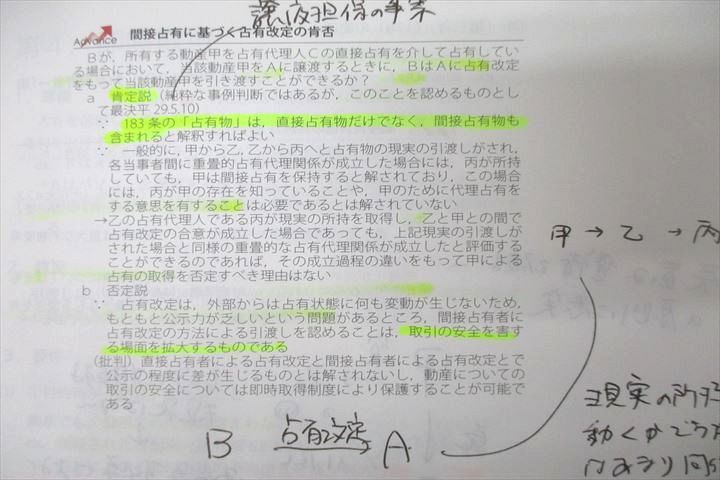 譲渡担保の事案
Advance 間接占有に基づく占有改定の肯否
Bが,所有する動産甲を占有代理人Cの直接占有を介して占有してい
る場合において,当該動産甲をAに譲渡するときに,BはAに占有改定
をもって当該動産甲を引き渡すことができるか?
a 肯定説(純粋な事例判断ではあるが,このことを認めるものとし
て最決平29.5.10)
∵ 183条の「占有物」は,直接占有物だけでなく,間接占有物も
含まれると解釈すればよい
∵ 一般的に,甲から乙,乙から丙へと占有物の現実の引渡しがされ,
各当事者間に重畳的占有代理関係が成立した場合には,丙が所持
していても,甲は間接占有を保持すると解されており,この場合
には,丙が甲の存在を知っていることや,甲のために代理占有を
する意思を有することは必要であるとは解されていない
→乙の占有代理人である丙が現実の所持を取得し,乙と甲との間で
占有改定の合意が成立した場合であっても,上記現実の引渡しが
された場合と同様の重畳的な占有代理関係が成立したと評価する
ことができるのであれば,その成立過程の違いをもって甲による
占有の取得を否定すべき理由はない
甲→乙→丙
b 否定説
∵ 占有改定は,外部からは占有状態に何も変動が生じないため,
もともと公示力が乏しいという問題があるところ,間接占有者に
占有改定の方法による引渡しを認めることは,取引の安全を害す
る場面を拡大するものである
(批判)直接占有者による占有改定と間接占有者による占有改定とで
公示の程度に差が生じるものとは解されないし,動産についての
取引の安全については即時取得制度により保護することが可能で
ある
現実の所持
動くかどうか
はあまり同
B 占有改定 A